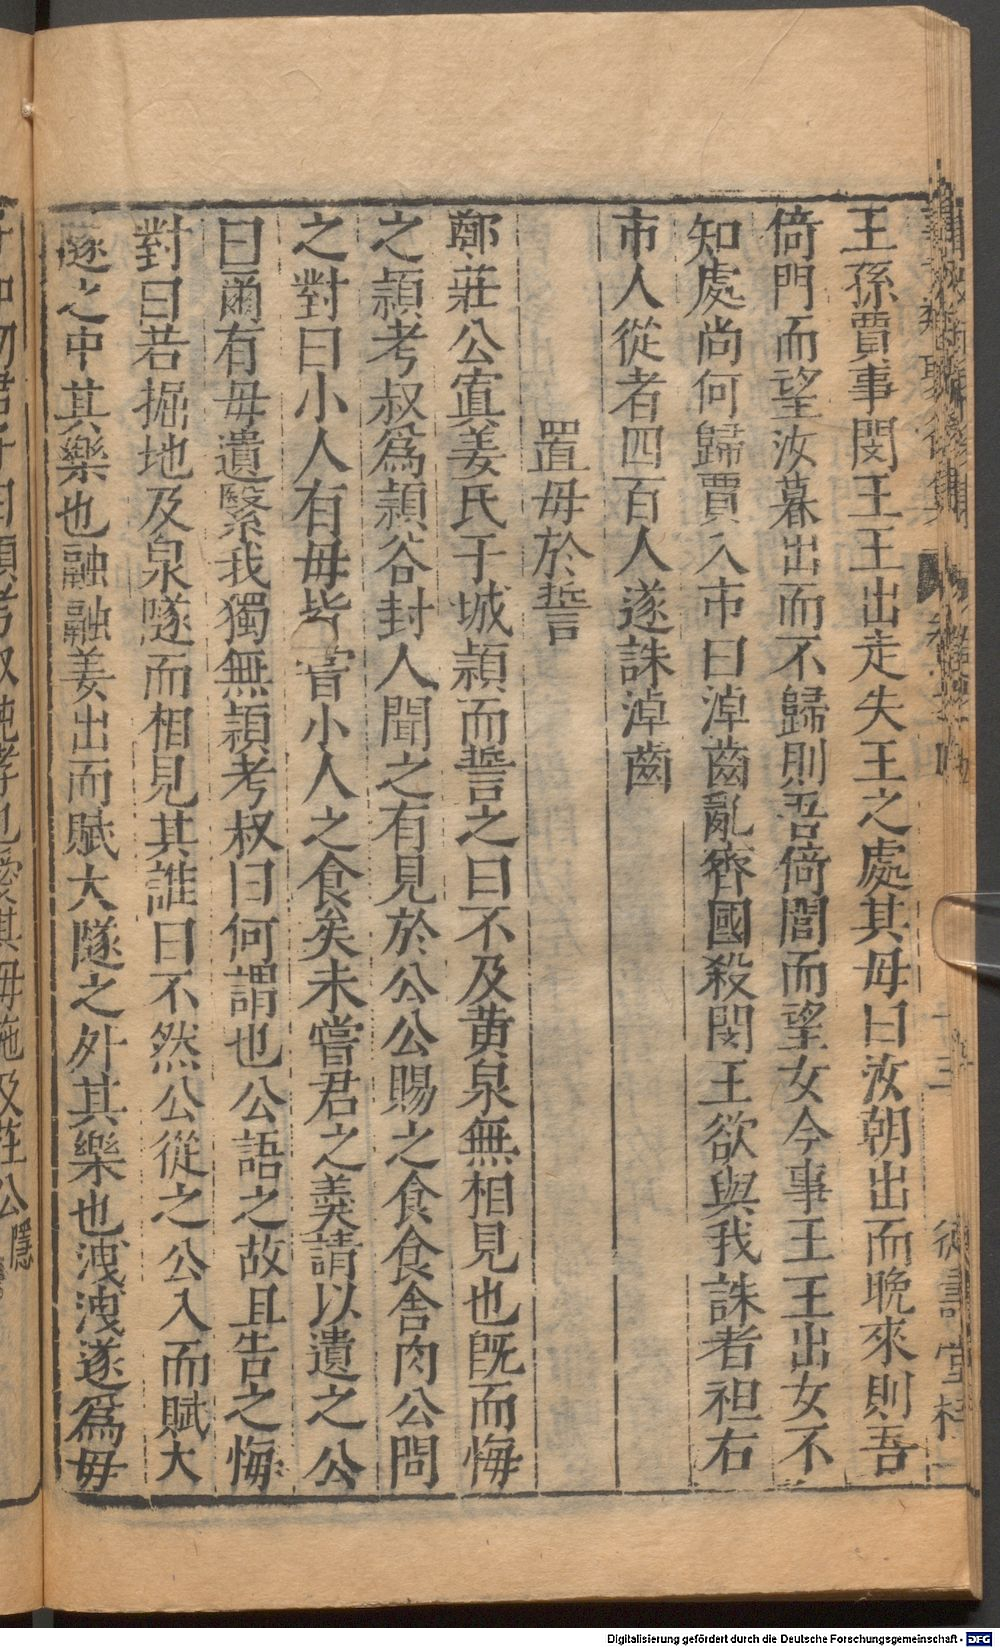 王孫賈事閔王王出走失王之處其母曰汝朝出而晩來則吾
倚門而望汝暮出而不歸則吾倚閭而望女今事王王出女不
知處尚何歸賈入市曰淖齒亂齊國殺閔王欲與我誅者袒右
市人從者四百人遂誅淖齒
置母於誓
鄭莊公寘姜氏于城潁而誓之曰不及黃泉無相見也旣而悔
之潁考叔爲潁谷封人聞之有見於公公賜之食食舍肉公問
之對曰小人有母皆嘗小人之食矣未嘗君之羹請以遺之公
曰爾有母遺繄我獨無潁考叔曰何謂也公語之故且告之悔
對曰若掘地及泉隧而相見其誰曰不然公從之公入而賦大
隧之中其樂也融融姜出而賦大隧之外其樂也洩洩遂爲母
Digitalisierung gefördert durch die Deutsche Forschungsgemeinschaft - DFG